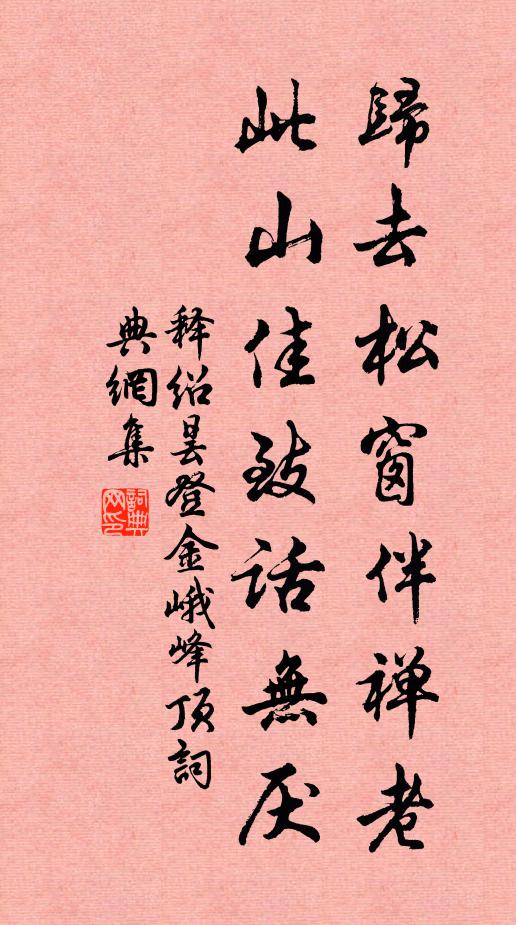 歸去松窗伴禅老
此山佳致話無厌
释绍昙登金峨峰顶詞
典網集
詞典网印